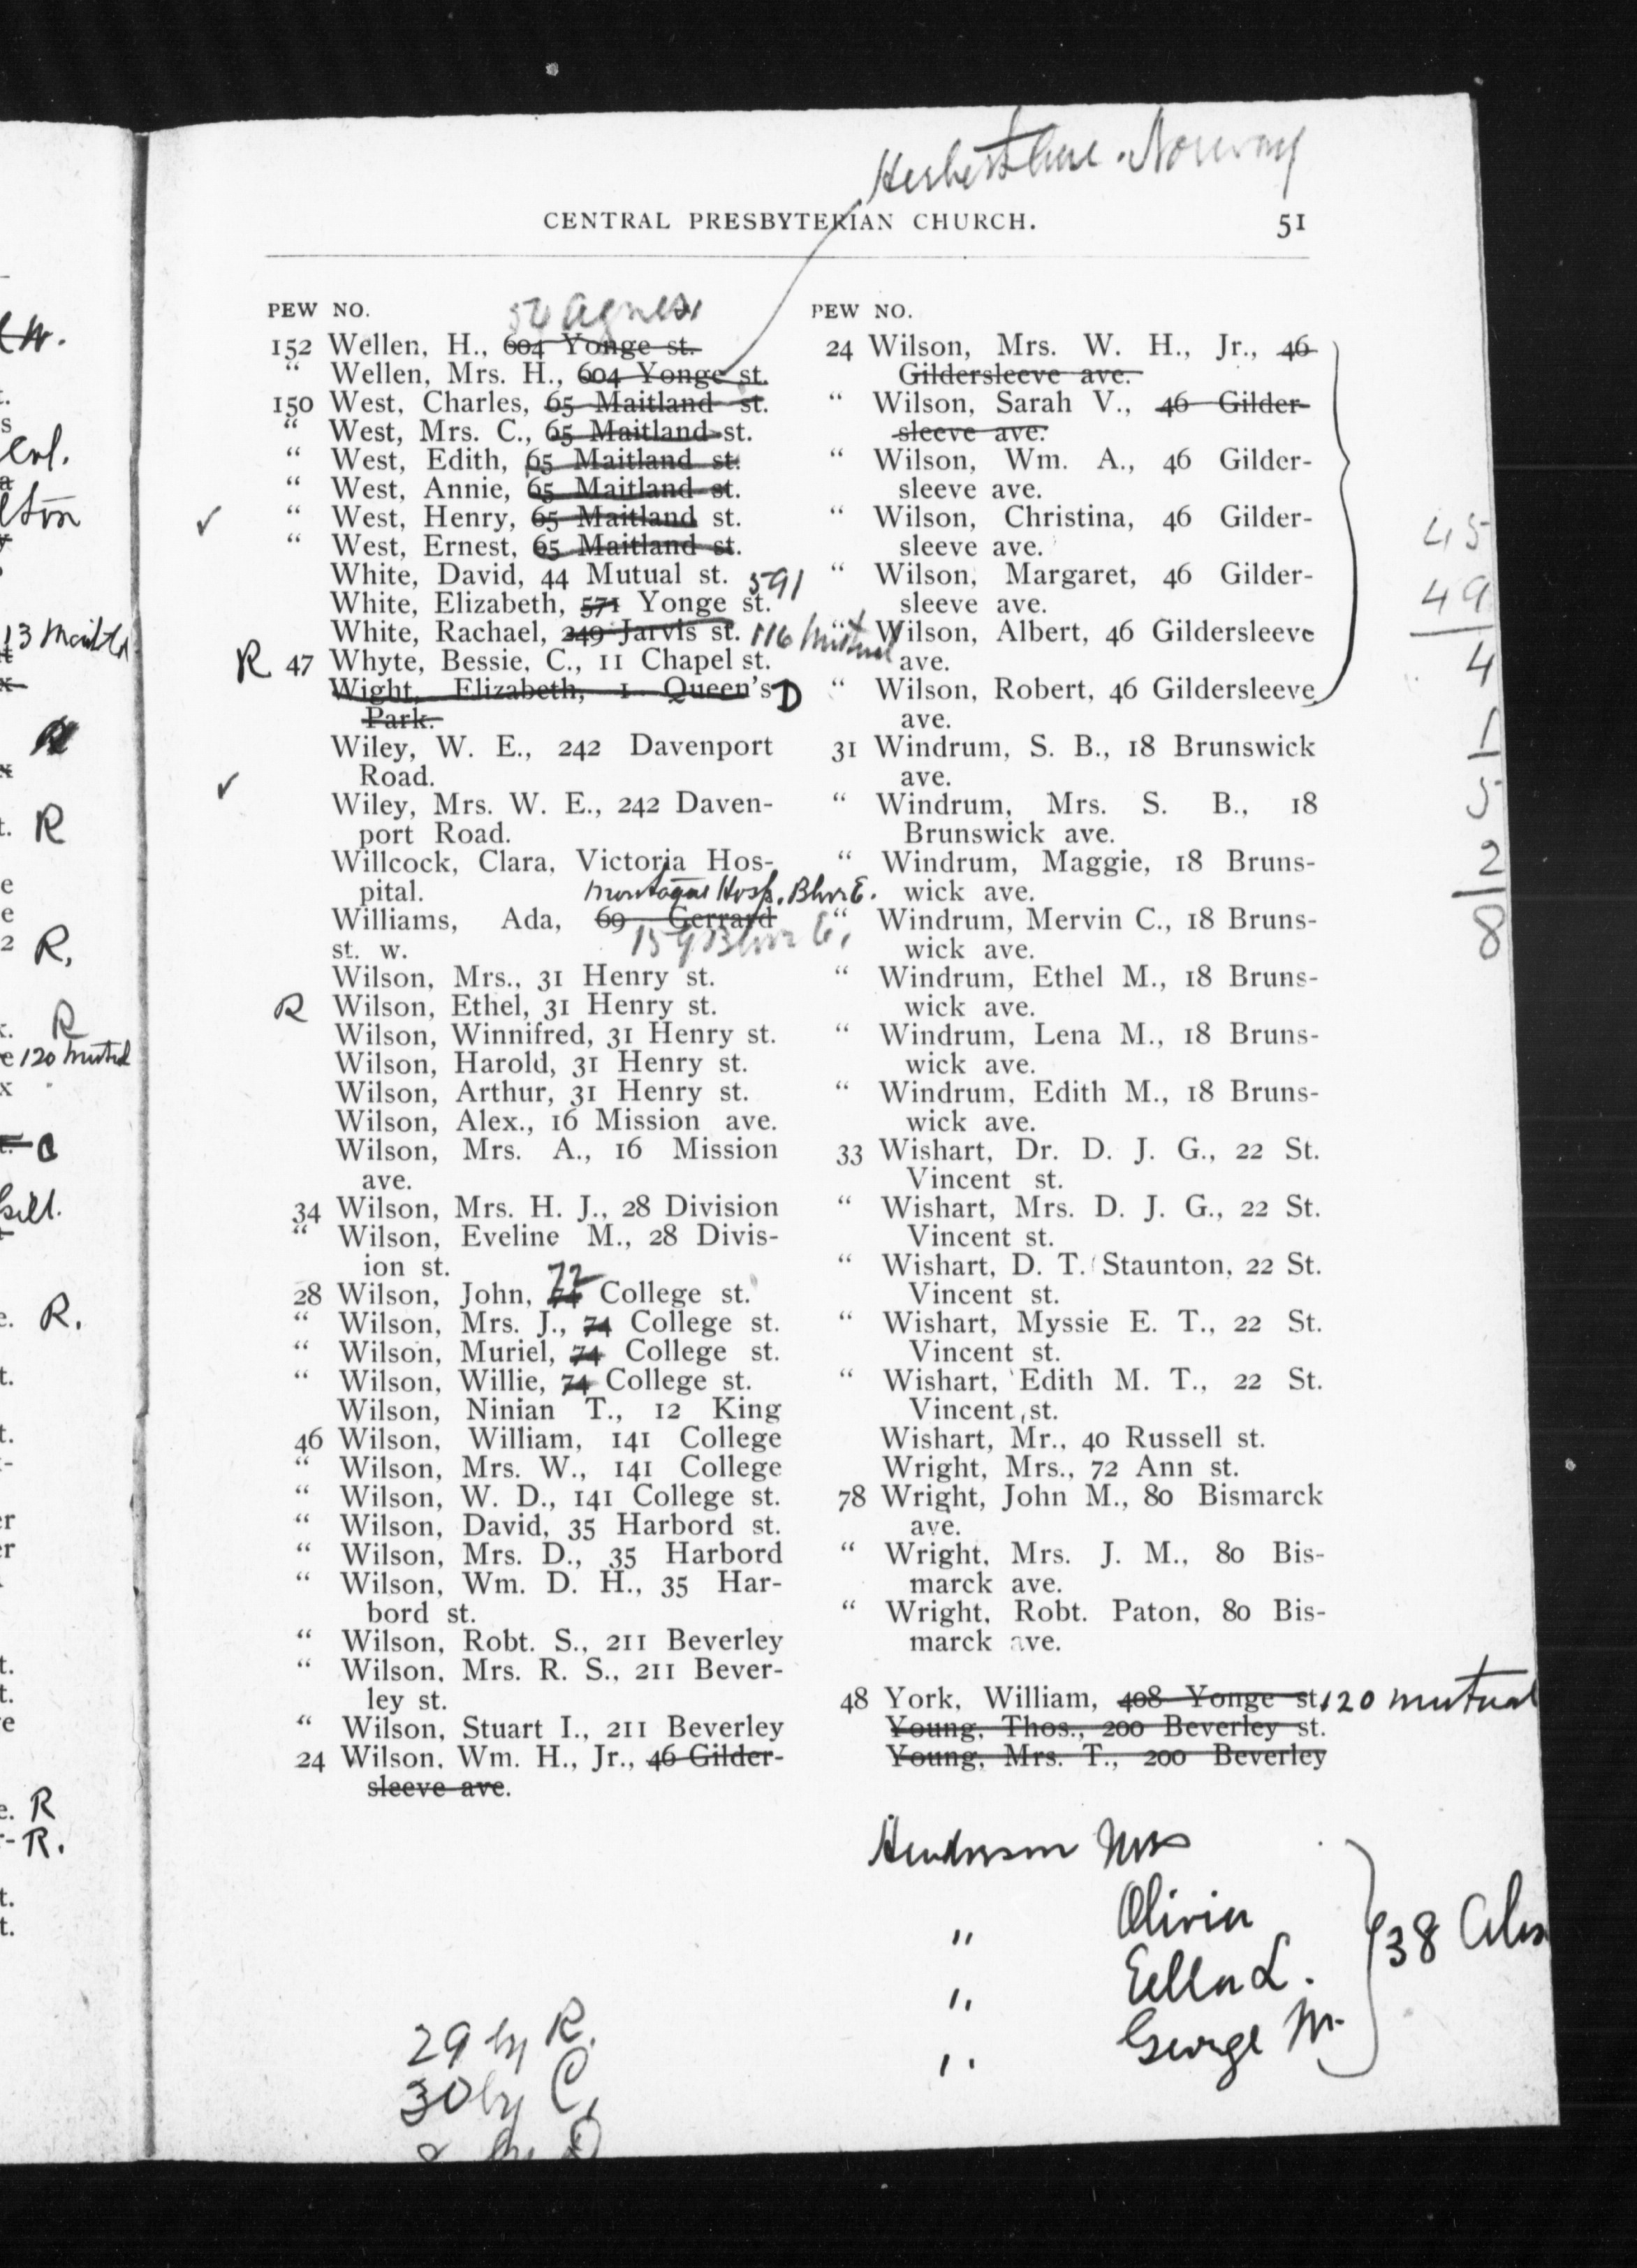 Norway
CENTRAL PRESBYTERIAN CHURCH.
51
PEW NO.
54 Agnes
152 Wellen, H., 604 Yonge st.
" Wellen, Mrs. H., 604 Yonge st.
150 West, Charles, 65 Maitland st.
" West, Mrs. C., 65 Maitland st.
" West, Edith, 65 Maitland st.
" West, Annie, 65 Maitland st.
" West, Henry, 65 Maitland st.
" West, Ernest, 65 Maitland st.
White, David, 44 Mutual st.
591
White, Elizabeth, 571 Yonge st.
White, Rachael, 249 Jarvis st. 116 Mutual
R 47 Whyte, Bessie, C., 11 Chapel st.
Wight, Elizabeth, 1 Queen's D
Park.
Wiley, W. E., 242 Davenport
Road.
Wiley, Mrs. W. E., 242 Daven-
port Road.
Willcock, Clara, Victoria Hos-
pital.
Montague Hosp. Bloor E.
Williams, Ada, 69 Gerrard
st. w. 159 Bloor E.
Wilson, Mrs., 31 Henry st.
R Wilson, Ethel, 31 Henry st.
Wilson, Winnifred, 31 Henry st.
Wilson, Harold, 31 Henry st.
Wilson, Arthur, 31 Henry st.
Wilson, Alex., 16 Mission ave.
Wilson, Mrs. A., 16 Mission
ave.
34 Wilson, Mrs. H. J., 28 Division
" Wilson, Eveline M., 28 Divis-
ion st.
72
28 Wilson, John, 74 College st.
" Wilson, Mrs. J., 74 College st.
" Wilson, Muriel, 74 College st.
" Wilson, Willie, 74 College st.
Wilson, Ninian T., 12 King
46 Wilson, William, 141 College
" Wilson, Mrs. W., 141 College
" Wilson, W. D., 141 College st.
" Wilson, David, 35 Harbord st.
" Wilson, Mrs. D., 35 Harbord
" Wilson, Wm. D. H., 35 Har-
bord st.
" Wilson, Robt. S., 211 Beverley
" Wilson, Mrs. R. S., 211 Bever-
ley st.
" Wilson, Stuart I., 211 Beverley
24 Wilson, Wm. H., Jr., 46 Gilder-
sleeve ave.
29 by R.
30 by C.
PEW NO.
24 Wilson, Mrs. W. H., Jr., 46
Gildersleeve ave.
" Wilson, Sarah V., 46 Gilder-
sleeve ave.
" Wilson, Wm. A., 46 Gilder-
sleeve ave.
" Wilson, Christina, 46 Gilder-
sleeve ave.
" Wilson, Margaret, 46 Gilder-
sleeve ave.
" Wilson, Albert, 46 Gildersleeve
ave.
" Wilson, Robert, 46 Gildersleeve
ave.
31 Windrum, S. B., 18 Brunswick
ave.
" Windrum, Mrs. S. B., 18
Brunswick ave.
" Windrum, Maggie, 18 Bruns-
wick ave.
" Windrum, Mervin C., 18 Bruns-
wick ave.
" Windrum, Ethel M., 18 Bruns-
wick ave.
" Windrum, Lena M., 18 Bruns-
wick ave.
" Windrum, Edith M., 18 Bruns-
wick ave.
33 Wishart, Dr. D. J. G., 22 St.
Vincent st.
" Wishart, Mrs. D. J. G., 22 St.
Vincent st.
" Wishart, D. T. Staunton, 22 St.
Vincent st.
" Wishart, Myssie E. T., 22 St.
Vincent st.
" Wishart, Edith M. T., 22 St.
Vincent st.
Wishart, Mr., 40 Russell st.
Wright, Mrs., 72 Ann st.
78 Wright, John M., 80 Bismarck
ave.
" Wright, Mrs. J. M., 80 Bis-
marck ave.
" Wright, Robt. Paton, 80 Bis-
marck ave.
48 York, William, 408 Yonge st. 120 Mutual
Young, Thos., 200 Beverley st.
Young, Mrs. T., 200 Beverley
Henderson Mrs
" Olivia
" Ella L.
" George M.
38 Alex
45
49
4
1
5
2
8